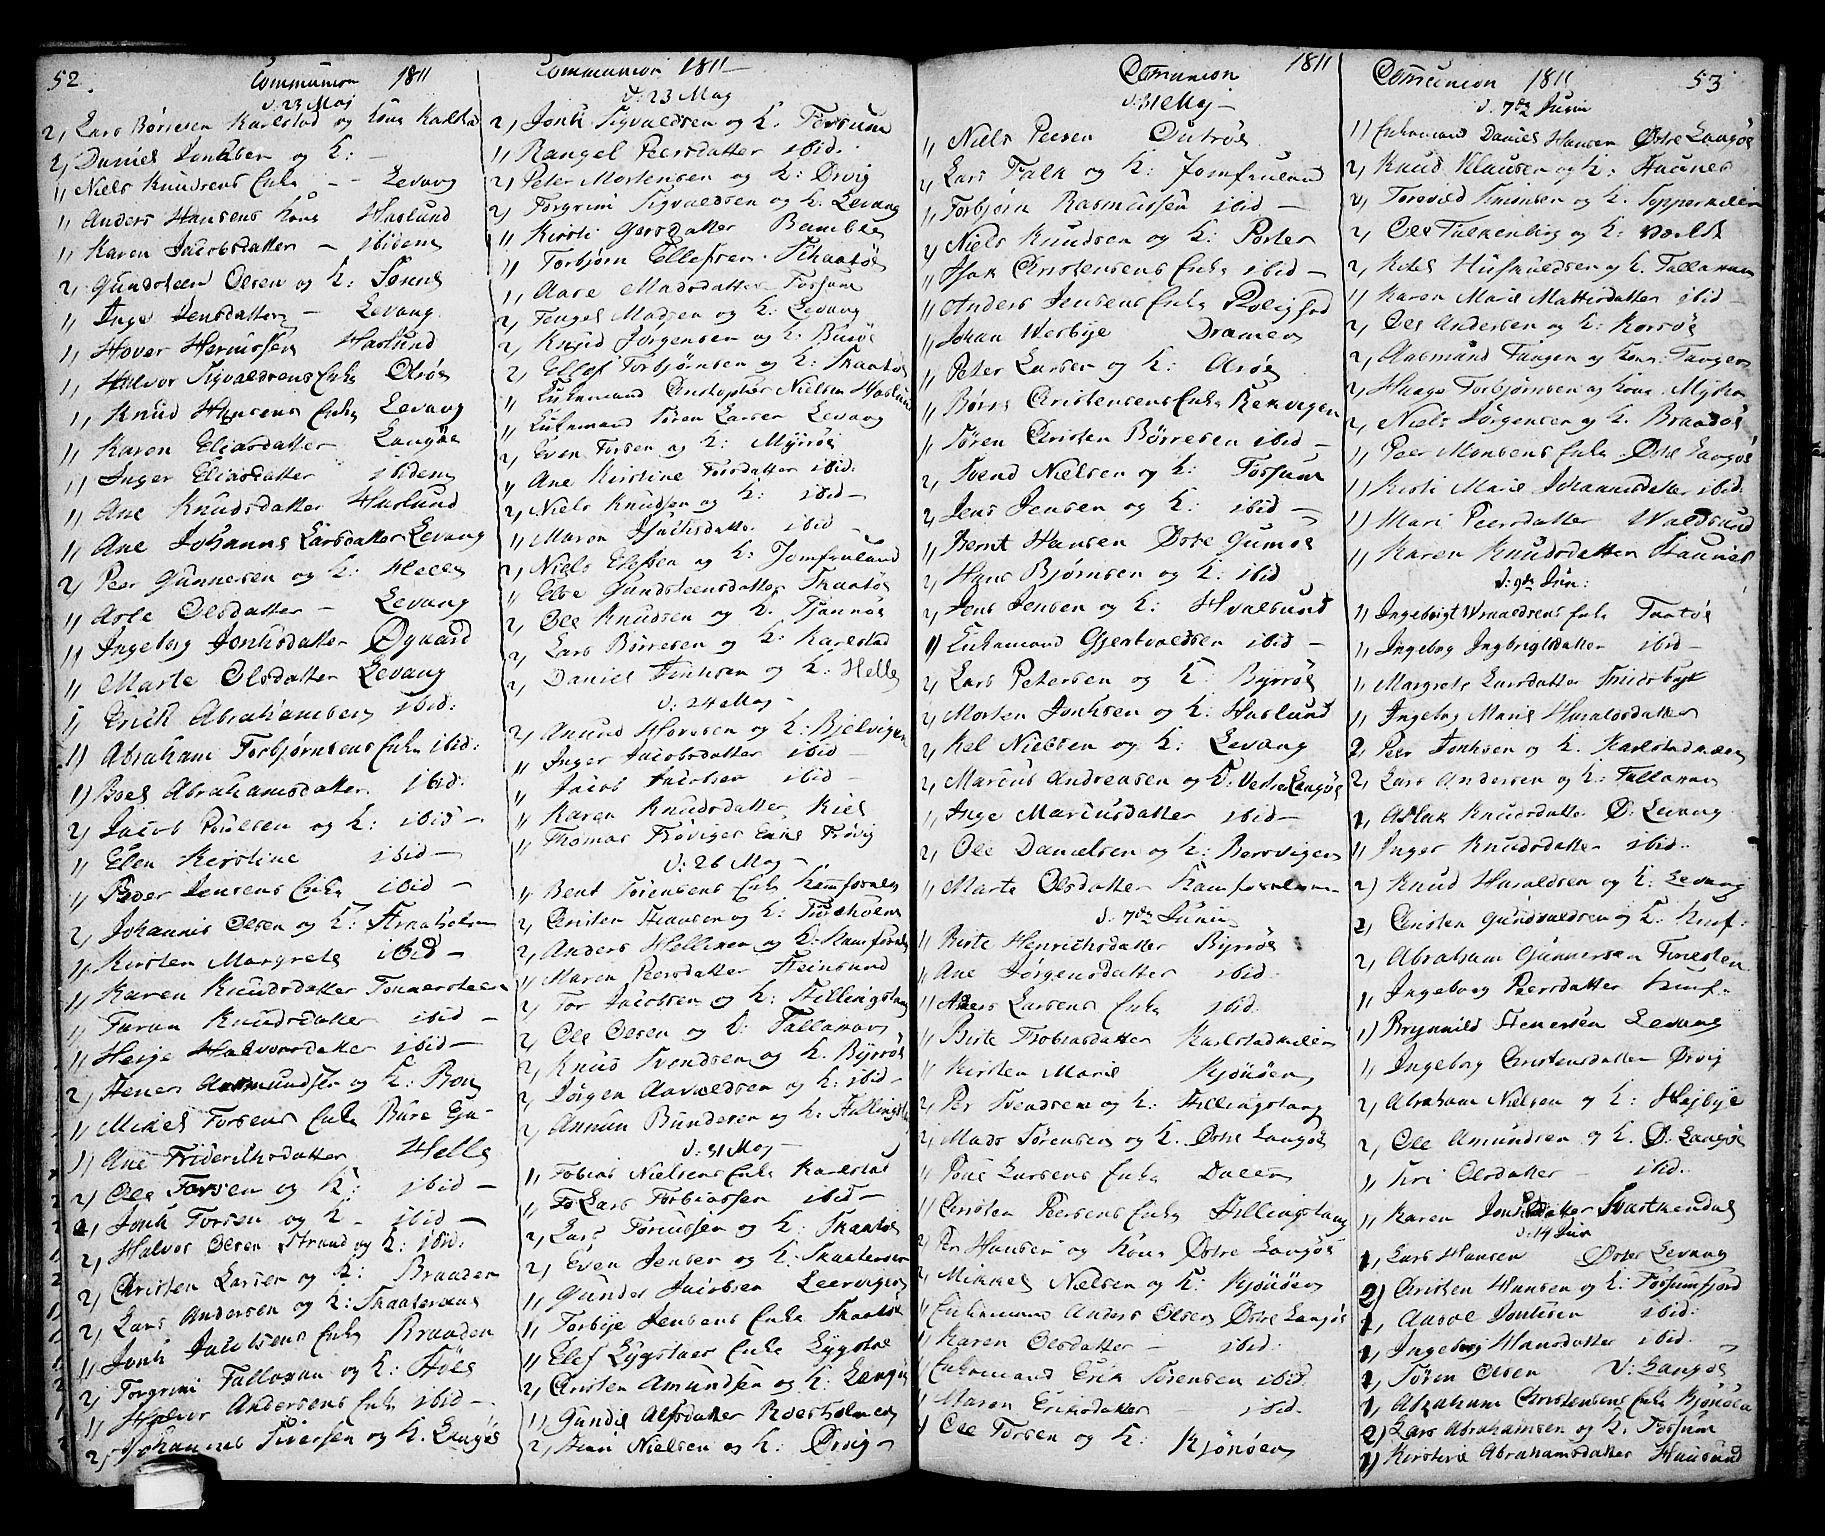 52.
Communion 1811
d: 23 Maj
2) Lars Børresen Karlstad og Kona Karlstad
2) Daniel Jonhsen og K: —
1) Niels Knudsens Enke — Levang
1) Anders Hansens Kona Haslund
1) Karen Jacobsdatter — ibidem
2) Gundsteen Olsen og K: Tønnes
1) Inge Jensdatter — Levang
1) Hover Hermansen Haslund
1) Halvor Sigvaldsens Enke Olsøe
1) Knud Hansens Enke Levang
1) Karen Eliasdatter Langøe
1) Inger Eliasdatter ibidem
1) Ane Knudsdatter Haslund
1) Ane Johanne Larsdatter Levang
2) Peer Gunnersen og K: Helle
1) Aste Olsdatter — Levang
1) Ingeborg Jonhsdatter Øgaard
1) Marte Olsdatter Levang
1) Erick Abrahamsen ibid:
1) Abraham Torbjørnsens Enke ibid:
1) Boel Abrahamsdatter ibid:
2) Jacob Poulsen og K: ibid —
1) Elen Kirstine ibid —
1) Peder Jensens Enke ibid —
2) Johannes Olsen og K: Straaholmen
1) Kirsten Margrete ibid —
1) Karen Knudsdatter Tonnersteen
1) Turan Knudsdatter ibid —
1) Helje Halvorsdatter ibid —
2) Stener Aasmundsen og K: Roe
1) Mikel Torsens Enke
1) Ane Friderichsdatter Helle
2) Ole Torsen og K: ibid —
2) Jonh Torsen og K — ibid —
2) Halvor Olsen Strand og K: ibid:
2) Christen Larsen og K: Braaden
2) Lars Andersen og K: Skaateræs
1) Jonh Jacobsens Enke Braaden
2) Torgrim Tallaxan og K: Støle
1) Halvor Andersens Enke ibid —
2) Johannes Siversen og K. Langøe
Communion 1811
d: 23 Maj
2) Jonh Sigvaldsen og K. Fossum
1) Rangel Peersdatter ibid.
2) Peter Mortensen og K: Ørvig
2) Torgrim Sigvaldsen og K. Levang
1) Kirsti Gersdatter Bamble
1) Torbjørn Ellefsen Skaatøe
1) Aase Madsdatter Fossum
2) Tengel Madsen og K: Levang
2) Knud Jørgensen og K: Burøe
2) Ellef Torbjørnsen og K: Skaatøe
1) Enkemand Christopher Nielsen Haslund
1) Enkemand Søren Larsen Levang
2) Even Torsen og K: Myrøe
1) Ane Kirstine Torsdatter ibid:
2) Niels Knudsen og K: ibid —
1) Maren Isachsdatter ibid —
2) Niels Elefsen og K: Jomfruland
1) Else Gundsteensdatter Skaatøe
2) Ole Knudsen og K. Tjannøe
2) Lars Børresen og K: Karlstad
2) Daniel Jonhsen og K: Helle
d: 24 Maj —
2) Anund Hovesen og K: Bjelvigen
1) Inger Jacobsdatter ibid —
1) Jacob Jacobsen ibid —
1) Karen Knudsdatter Kiel
1) Thomas Frøviges Enke Frøvig
d: 26 Maj —
1) Bent Sørensens Enke Kamfosnes
2) Christen Hansen og K: Furuholme
2) Anders Hellinen og K: Kamfosnes
1) Maren Peersdatter Steinsund
2) Tor Jacobsen og K: Fillingstang
2) Ole Olsen og K: Tallaxan
2) Knud Svendsen og K. Byrrøe
2) Jørgen Aavaldsen og K: ibid —
2) Annun Bundesen og K: Fillingsta
d: 31 Maj —
1) Tobias Nielsens Enke Karlstad
1) Lars Tobiassen ibid —
2) Lars Tormssen og K: Skaatøe
2) Even Jensen og K: Skaateræn
1) Gunder Jacobsen Leervigen
1) Torbje Jensens Enke Skaatøe
1) Elef Lygstaes Enke Lygstøe
2) Christen Amundsen og K: Langøe
1) Gundil Alfsdatter Rdesholmen
2) Iver Nielsen og K: Ørvig —
Communion 1811
d: 31 Maj —
1) Niels Peersen Outrøe
2) Lars Falk og K: Jomfruland
1) Torbjørn Rasmussen ibid —
2) Niels Knudsen og K: Porter
1) Isak Christensens Enke ibid —
1) Anders Jensens Enke Roligsted
1) Johan Werbye Dramen
2) Peter Larsen og K: Arøe
1) Børre Christensens Enke Rekevigen
1) Søren Christen Børresen ibid —
2) Svend Nielsen og K: Fossum
2) Jens Jensen og K: ibid —
1) Bernt Hansen Østre Gumøe
2) Hans Bjørnsen og K: ibid
2) Jens Jensen og K: Hvalsund
1) Enkemand Gjertvaldsen ibid —
2) Lars Petersen og K: Byrrøe
2) Morten Jonhsen og K: Haslund
2) Kel Nielsen og K: Levang
2) Marcus Andreasen og K: Vestre Langøe
1) Inge Marcusdatter ibid —
2) Ole Danielsen og K: Berrvigen
1) Marte Olsdatter Kamfosnes
d: 7de Junii
1) Birte Henrichsdatter Byrrøe
1) Ane Jørgensdatter ibid.
1) Anders Larsens Enke ibid.
1) Birte Tobiasdatter Karlstadkilen
1) Kirsten Marie Kjønøen
2) Per Svendsen og K: Fillingstang
2) Mads Sørensen og K. Østre Langøe
1) Poul Larsens Enke Dalen
1) Christen Peersens Enke Fillingstang
2) Per Hansen og Kona Østre Langøe
2) Mikkel Nielsen og K: Kjønøen
1) Enkemand Anders Olsen Østre Langøe
1) Karen Olsdatter — ibid:
1) Enkemand Erik Sørensen ibid.
1) Maren Eriksdatter ibid.
2) Ole Torsen og K: Kjønøen
Communion 1811 53
d: 7de Junii
1) Enkemand Daniel Hansen Østre Langøe
2) Knud Klausen og K: Staunes
2) Torevild Siminsen og K. Topperkilen
2) Ole Falkenberg og K: Værlst
2) Ketel Husfuldsen og K. Tallaxan
1) Karen Marie Mattisdatter ibid —
2) Ole Andersen og K: Korsøe
2) Aasmund Tangen og Kona Tangen
2) Haage Torbjørnsen og Kona Myhren
2) Niels Jørgensen og K. Brandøe
1) Peer Monsens Enke Østre Langøe
1) Kirsti Marie Johannisdatter ibid.
1) Mari Peersdatter Waldsund
1) Karen Knudsdatter Staunes
d: 9de Juni:
1) Ingebrigt Wraaldsens Enke Taatøe
1) Ingeborg Ingbrigtsdatter ibid —
1) Margrete Larsdatter Smidsbye
1) Ingeborg Marie Haraldsdatter
2) Peer Jonhsen og K. Karlstadkilen
2) Lars Andersen og K: Tallaxan
1) Aslak Knudsdatter Ø: Levang
1) Inger Knudsdatter ibid.
2) Knud Haraldsen og K: Levang
2) Christen Gundvaldsen og K. Kurf:
2) Abraham Gunnersen Furesten
1) Ingeborg Peersdatter Kurf:
1) Brynnild Stenersen Levang
1) Ingeborg Christensdatter Ørvig
2) Abraham Nielsen og K: Høibye
2) Ole Amundsen og K. Ø. Langøe
1) Siri Olsdatter — ibid.
1) Karen Jonsdatter Svartkendal
d. 14 Jun
1) Lars Hansen Østre Levang
2) Christen Hansen og K: Fossumfjord
1) Aasol Jonhsen ibid:
1) Ingeborg Hansdatter ibid —
1) Søren Olsen V: Langøe
1) Abraham Christensens Enke Kjønøen
2) Lars Abrahamsen og K. Fossum
1) Kirstine Abrahamsdatter Haasund